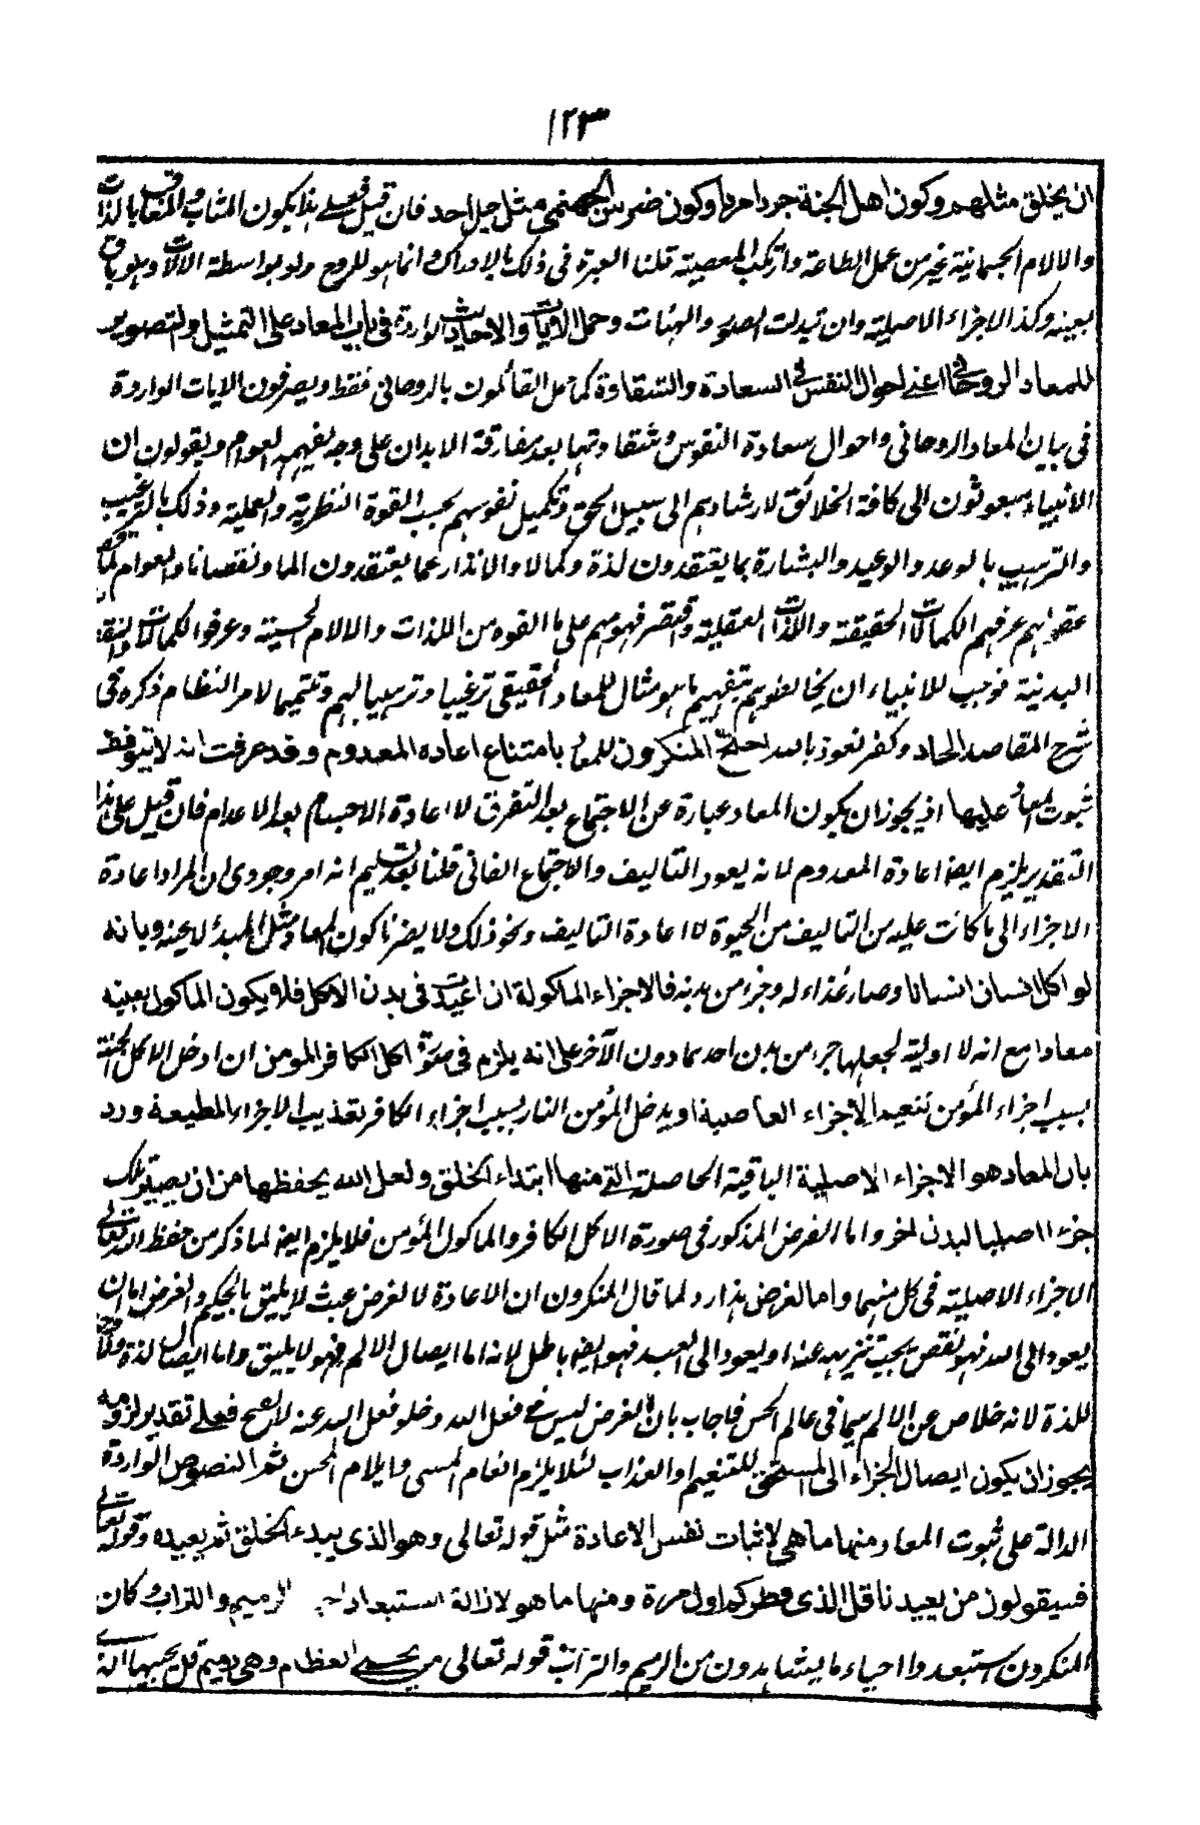 ١٢٣
ان يخلق مثلهم وكون اهل الجنة جردا مردا وكون ضرس الجهنمى مثل جبل احد فان قيل فعلى هذا يكون المثاب والمعاقب باللذات
والالام الجسمانية غير من عمل الطاعة وارتكب المعصية قلنا العبرة فى ذلك بالادراك وانما هو للروح ولو بواسطة الالات وهو باق
بعينه وكذا الاجزاء الاصلية وان تبدلت الصور والهيئات وحمل الايات والاحاديث الواردة فى باب المعاد على التمثيل والتصوير
للمعاد الروحانى اعنى احوال النفس فى السعادة والشقاوة كما حمل القائلون بالروحانى فقط ويصرفون الايات الواردة
فى بيان المعاد الروحانى واحوال سعادة النفوس وشقاوتها بعد مفارقة الابدان على وجه يفهمه العوام ويقولون ان
الانبياء مبعوثون الى كافة الخلائق لارشادهم الى سبيل الحق وتكميل نفوسهم بحسب القوة النظرية والعملية وذلك بالترغيب
والترهيب بالوعد والوعيد والبشارة بما يعتقدون لذة وكمالا والانذار عما يعتقدون الما ونقصانا والعوام لما
عقولهم عرفهم الكمالات الحقيقية واللذات العقلية واقتصر فهومهم على ما القوه من اللذات والالام الحسية وعرفوا الكمالات والنقصانات
البدنية فوجب للانبياء ان يخاطبوهم بتفهيم ما هو مثال للمعاد الحقيقى ترغيبا وترهيبا لهم وتتميما لامر النظام ذكره فى
شرح المقاصد الحاد وكفر نعوذ بالله احتج المنكرون للمعاد بامتناع اعاده المعدوم وقد عرفت انه لا يتوقف
ثبوت المعاد عليها اذ يجوز ان يكون المعاد عبارة عن الاجتماع بعد التفرق لا اعادة الاجسام بعد الاعدام فان قيل على هذا
التقدير يلزم ايضا اعادة المعدوم لانه يعود التاليف والاجتماع الفانى قلنا بعد تسليم انه امر وجودى ان المراد اعادة
الاجزاء الى ما كانت عليه من التاليف من الحيوة لا اعادة التاليف ونحو ذلك ولا يضرنا كون المعاد مثل المبدأ لا عينه وبانه
لو اكل انسان انسانا وصار غذاء له وجزء من بدنه فالاجزاء الماكولة ان اعيدت فى بدن الاكل فلا يكون الماكول بعينه
معادا مع انه لا اولية لجعلها جزء من بدن احدهما دون الآخر على انه يلزم فى صورة اكل الكافر المومن ان ادخل الاكل الجنة
بسبب اجزاء المؤمن تنعيم الاجزاء العاصية او يدخل المؤمن النار بسبب اجزاء الكافر تعذيب الاجزاء المطيعة ورد
بان المعاد هو الاجزاء الاصلية الباقية الحاصلة التى منها ابتداء الخلق ولعل الله يحفظها من ان يصير تلك
جزءا اصليا لبدن اخر واما الفرض المذكور فى صورة الاكل الكافر والماكول المؤمن فلا يلزم ايضا لما ذكر من حفظ الله تعالى
الاجزاء الاصلية فى كل منهما واما الغرض هذا رد لما قال المنكرون ان الاعادة لا لغرض عبث لا يليق بالحكيم والغرض اما ان
يعود الى الله فهو نقص يجب تنزيهه عنه او يعود الى العبد فهو ايضا باطل لانه اما ايصال الالم فهو لا يليق واما ايصال لذة ولا
للذة لانه خلاص عن الالم سيما فى عالم الحس فاجاب بان الغرض ليس فى فعل الله وخلو فعل الله عنه لا يقبح فعلى تقدير لزومه
يجوز ان يكون ايصال الجزاء الى المستحق للتنعيم او العذاب لئلا يلزم انعام المسى وايلام المحسن ثم النصوص الواردة
الدالة على ثبوت المعاد منها ما هى لاثبات نفس الاعادة مثل قوله تعالى وهو الذى يبدء الخلق ثم يعيده وقوله تعالى
فسيقولون من يعيدنا قل الذى فطركم اول مرة ومنها ما هو لازالة استبعاد الرميم والتراب وكان
المنكرون استبعدوا احياء ما يشاهدون من الرميم والتراب قوله تعالى من يحيى العظام وهى رميم قل يحييها الذى